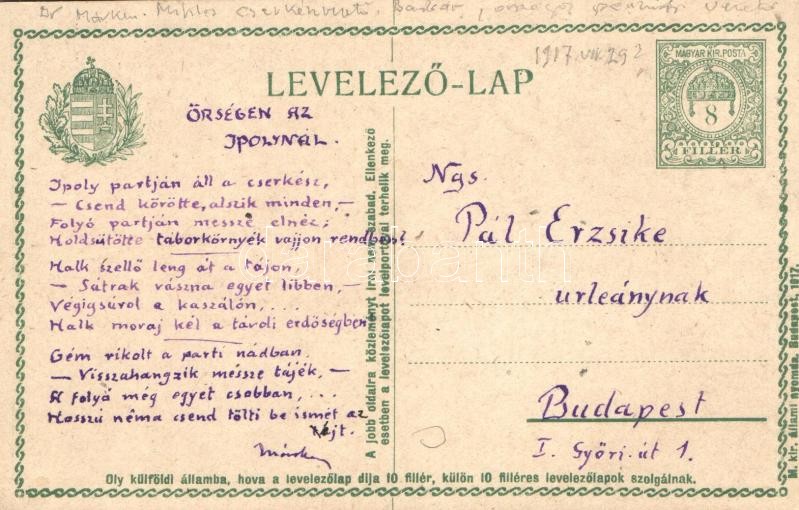 Dr Márkus Miklós cserkészvezető
1917.VII.29?
MAGYAR KIR. POSTA
8
FILLER
LEVELEZŐ-LAP
ŐRSÉGEN AZ
IPOLYNÁL.
Ipoly partján áll a cserkész,
— Csend körötte, alszik minden, —
Folyó partján messze elnéz;
Holdsütötte táborkörnyék vajjon rendben!
Halk szellő leng át a tájon,
— Sátrak vászna egyet libben, —
Végigsurol a kaszálón, ...
Halk moraj kél a távoli erdőségben
Gém rikolt a parti nádban
— Visszahangzik messze tájék, —
A folyó még egyet csobban, ...
Hosszú néma csend tölti be ismét az
éjt.
A jobb oldalra közleményt irni nem szabad. Ellenkező
esetben a levelezőlapot levelportóval terhelik meg.
Ngs.
Pál Erzsike
urleánynak
Budapest
I. Győri út 1.
Oly külföldi államba, hova a levelezőlap dija 10 fillér, külön 10 filléres levelezőlapok szolgálnak.
M. kir. állami nyomda. Budapest, 1917.
darabanth